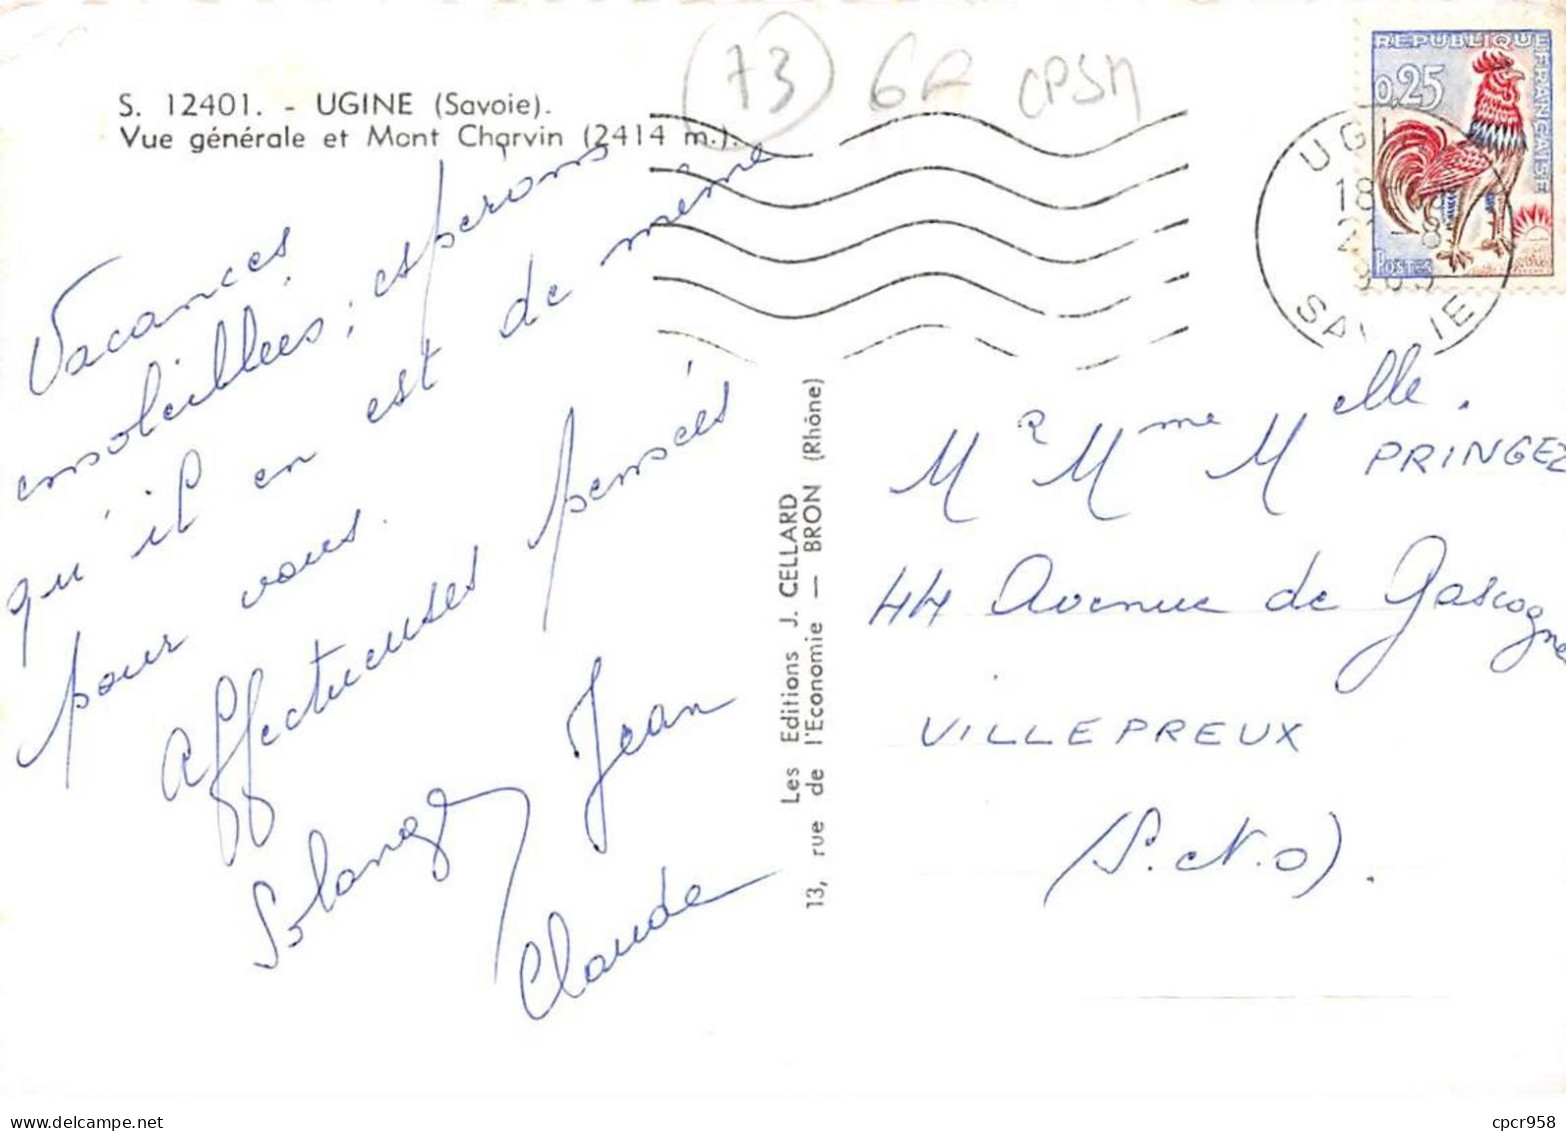 S. 12401. - UGINE (Savoie).
Vue générale et Mont Charvin (2414 m.).
73 GF CPSM
REPUBLIQUE FRANÇAISE
0,25
POSTES
UGI
18
-8
SAV IE
Vacances
ensoleillées; espérons
qu'il en est de même
pour vous.
Affectueuses pensées
Solange Jean
Claude
Les Editions J. CELLARD
13, rue de l'Economie — BRON (Rhône)
Mr Mme Melle.
PRINGEZ
44 Avenue de Gascogne
VILLEPREUX
(S.N.O).
cpcr958